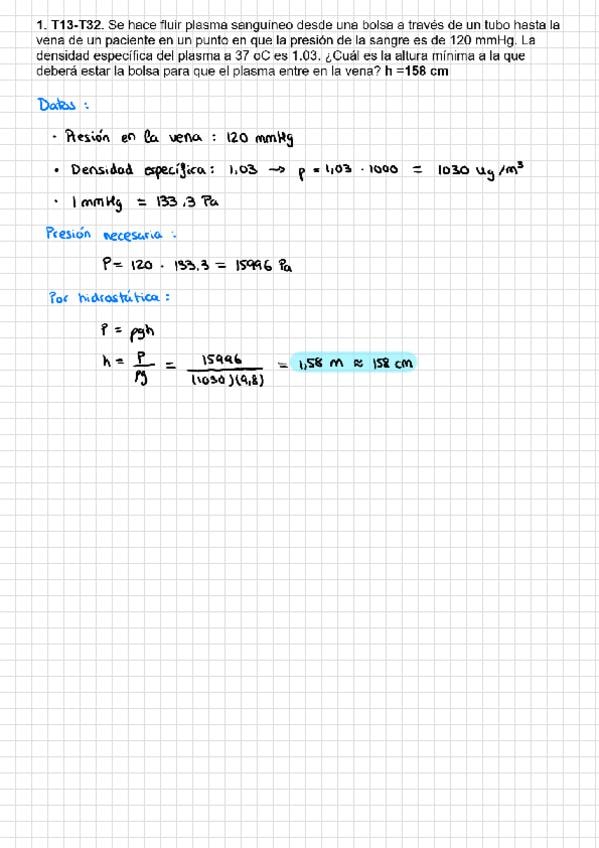 1. T13-T32. Se hace fluir plasma sanguíneo desde una bolsa a través de un tubo hasta la
vena de un paciente en un punto en que la presión de la sangre es de 120 mmHg. La
densidad específica del plasma a 37 oC es 1.03. ¿Cuál es la altura mínima a la que
deberá estar la bolsa para que el plasma entre en la vena? h =158 cm
Datos :
· Presión en la vena : 120 mmHg
· Densidad específica : 1,03 → ρ = 1,03 · 1000 = 1030 kg/m³
· 1 mmHg = 133,3 Pa
Presión necesaria :
P = 120 · 133,3 = 15996 Pa
Por hidrostática :
P = ρgh
h = P/ρg = 15996/(1030)(9,8) = 1,58 m ≈ 158 cm